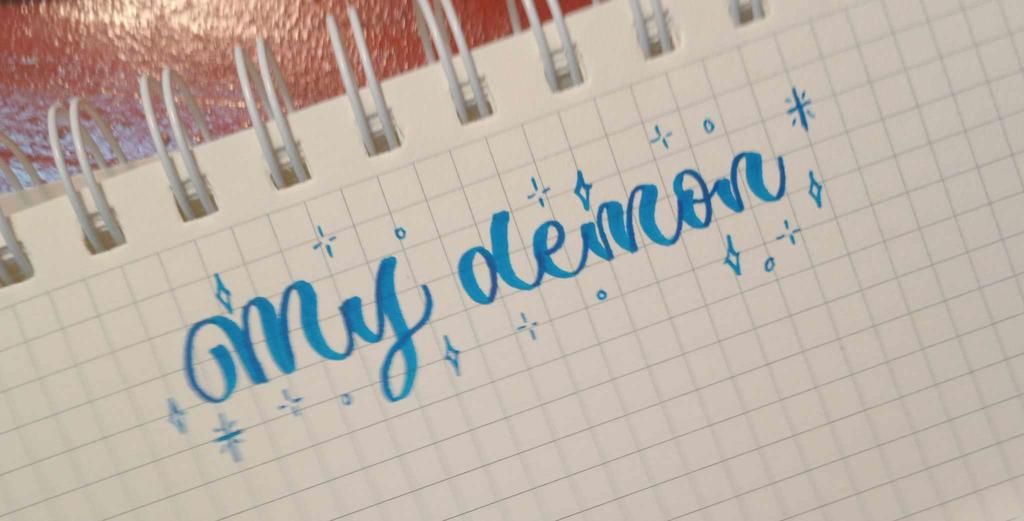 My demon